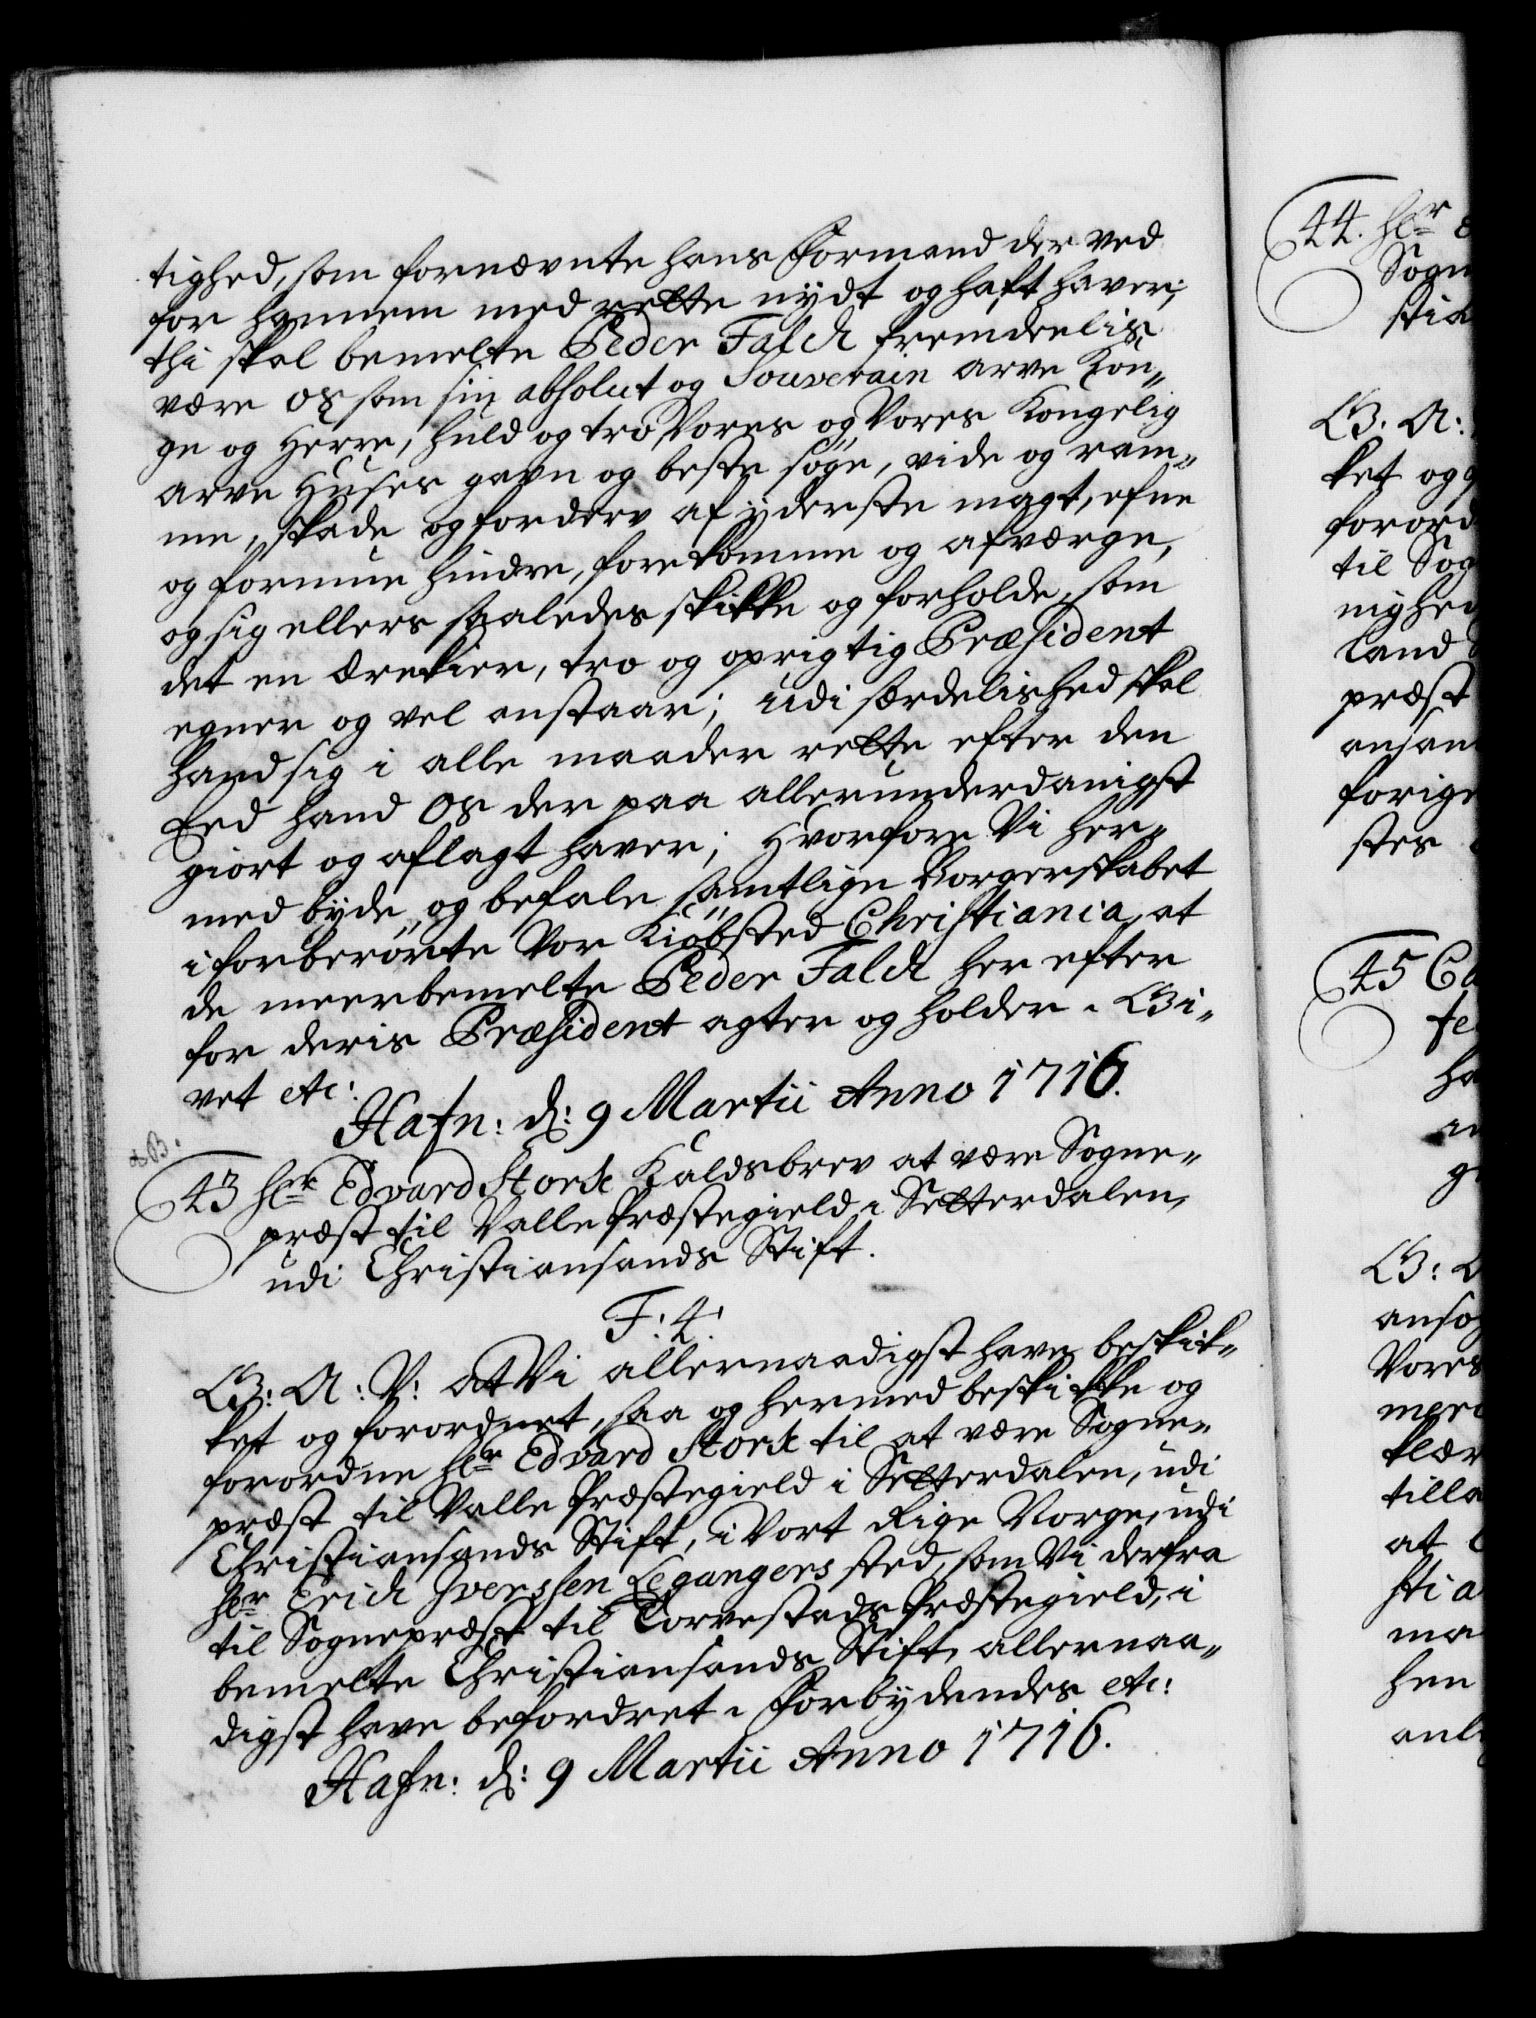 tighed, som fornævnte hans Formand der ved
for hannem med rette nydt og haft haver;
thi skal bemelte Peder Falck fremdeelis
være os som sin absolut og Souverain arve Kon„
ge og Herre, huld og tro Vores og Vores Kongelig
arve Huses gavn og beste søge, vide og ram„
me, skade og forderv af yderste magt, efne
og formue hindre, forekomme og afværge,
og sig ellers saaledes skikke og forholde, som
det en ærekier, tro og oprigtig Præsident
egner og vel anstaar; udi særdelished skal
hand sig i alle maader rette efter den
Eed hand Os der paa allerunderdanigst
giort og aflagt haver; Hvorfore Vi her„
med byde og befale samtlige Borgerskabet
i forberørte Vor Kiøbsted Christiania, at
de meerbemelte Peder Falck her efter
for deris Præsident agter og holder. Gi„
vet etc:
Hafn: d: 9 Martii Anno 1716.
NB.
43 Hr Edvard Stork Kaldsbrev at være Sogne„
præst til Valle Præstegield i Setterdalen,
udi Christiansands Stift.
F: 4.
G: A: V: at Vi allernaadigst have beskik„
ket og forordnet, saa og hermed beskikke og
forordne Hr Edvard Stork til at være Sogne„
præst til Valle Præstegield i Setterdalen, udi
Christiansands Stift, i Vort Rige Norge, udi
Hr Erich Iverssen Leganger's sted, som Vi derfra
til Sognepræst til Torvestads Præstegield, i
bemelte Christiansands Stift, allernaa„
digst have befordret. Forbydendes etc:
Hafn: d: 9 Martii Anno 1716.
44. Hr
Sogn
G. A:
ket og
forord
til Sog
land
præst
forige
stes
45
G:
Vores
tilla
at
ma
hen